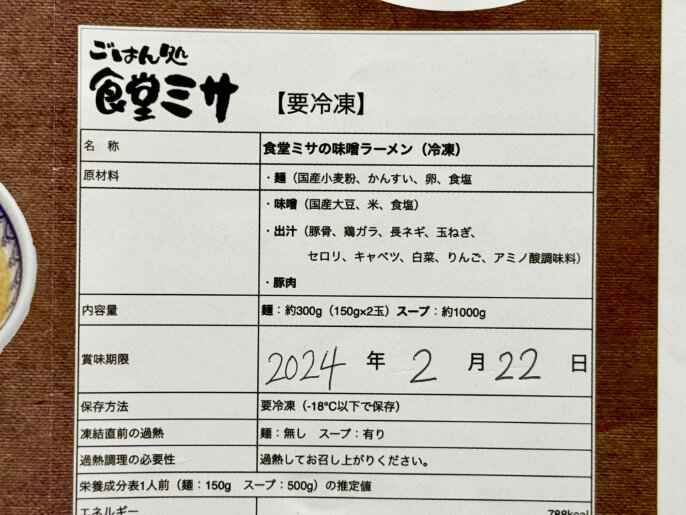 ごはん処
食堂ミサ
【要冷凍】
名　称　食堂ミサの味噌ラーメン（冷凍）
原材料　・麺（国産小麦粉、かんすい、卵、食塩
・味噌（国産大豆、米、食塩）
・出汁（豚骨、鶏ガラ、長ネギ、玉ねぎ、
セロリ、キャベツ、白菜、りんご、アミノ酸調味料）
・豚肉
内容量　麺：約300g（150g×2玉）スープ：約1000g
賞味期限　2024 年 2 月 22 日
保存方法　要冷凍（-18℃以下で保存）
凍結直前の過熱　麺：無し　スープ：有り
過熱調理の必要性　過熱してお召し上がりください。
栄養成分表1人前（麺：150g　スープ：500g）の推定値
エネルギー　788kcal